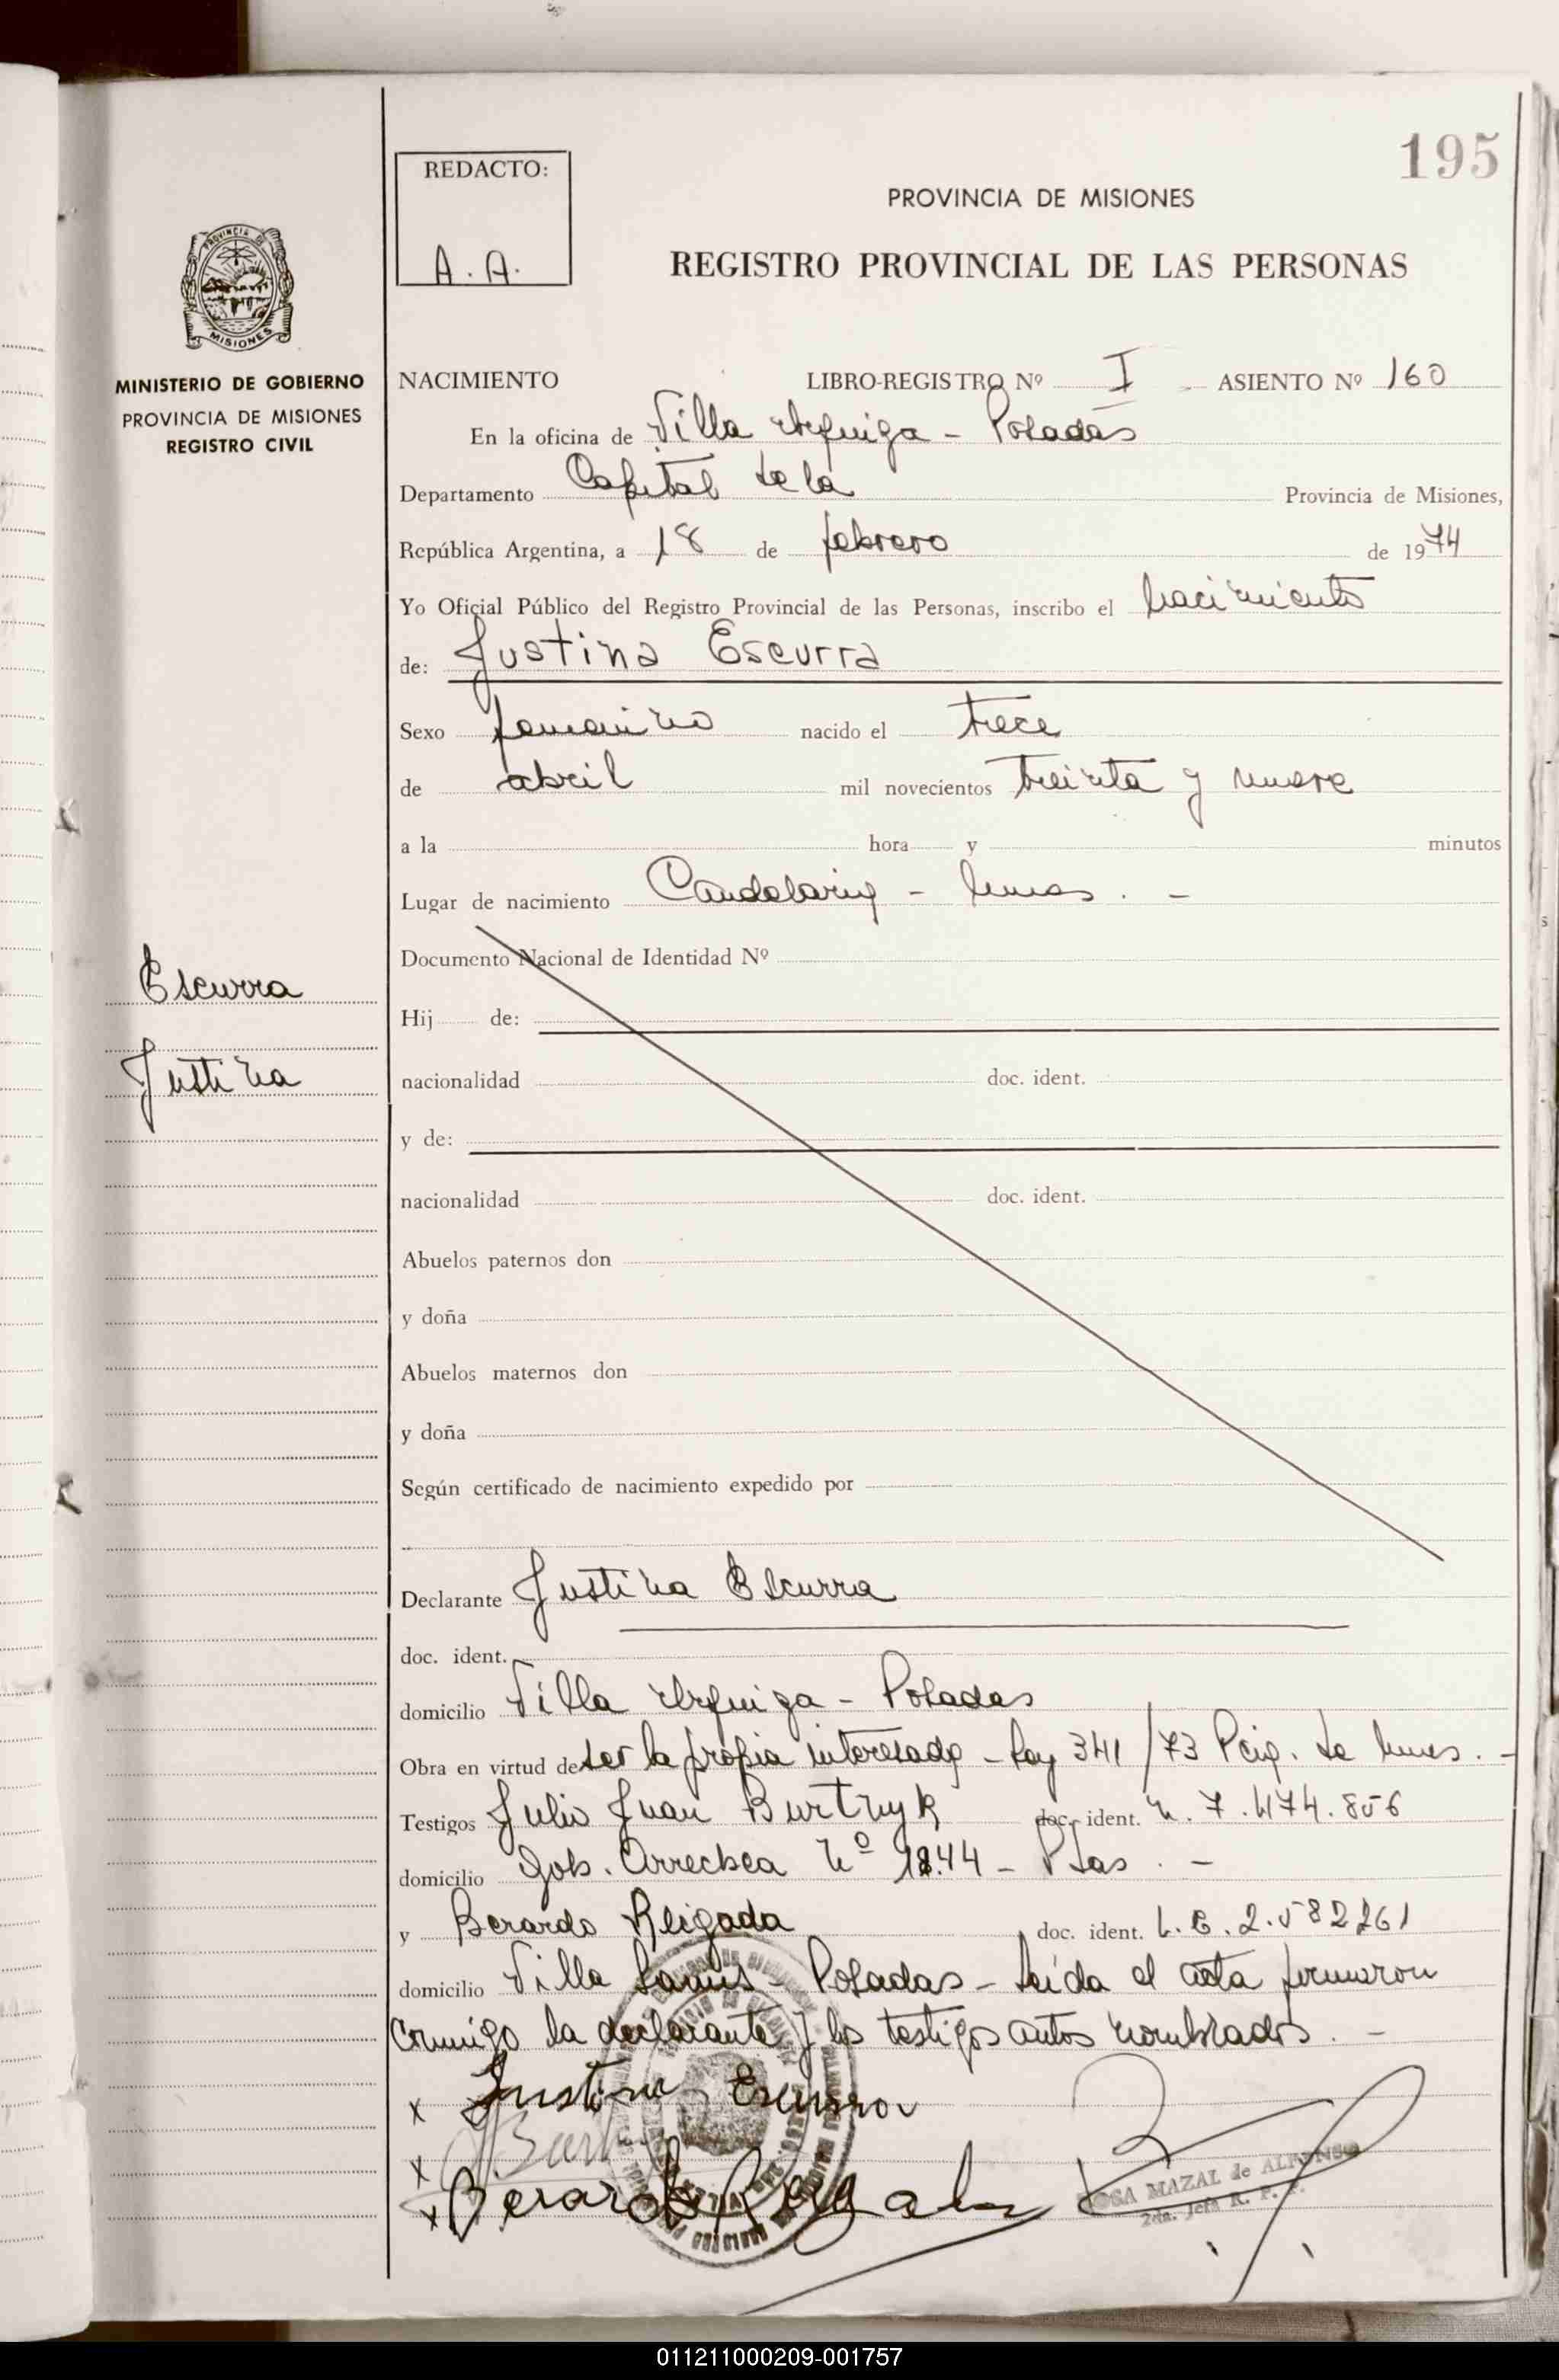 195
REDACTO:
A. A.
PROVINCIA DE MISIONES
REGISTRO PROVINCIAL DE LAS PERSONAS
PROVINCIA DE
MISIONES
MINISTERIO DE GOBIERNO
PROVINCIA DE MISIONES
REGISTRO CIVIL
NACIMIENTO LIBRO-REGISTRO Nº I - ASIENTO Nº 160
En la oficina de Villa Urquiza - Posadas
Departamento Capital de la Provincia de Misiones,
República Argentina, a 18 de febrero de 1974
Yo Oficial Público del Registro Provincial de las Personas, inscribo el nacimiento
de: Justina Escurra
Sexo femenino nacido el trece
de abril mil novecientos treinta y nueve
a la hora y minutos
Lugar de nacimiento Candelaria - Mnes. -
Documento Nacional de Identidad Nº
Escurra
Hij de:
Justina
nacionalidad doc. ident.
y de:
nacionalidad doc. ident.
Abuelos paternos don
y doña
Abuelos maternos don
y doña
Según certificado de nacimiento expedido por
Declarante Justina Escurra
doc. ident.
domicilio Villa Urquiza - Posadas
Obra en virtud de ser la propia interesada - Ley 341/73 Pcia. de Mnes. -
Testigos Julio Juan Burtnyk doc. ident. 7.474.856
domicilio Gob. Arrechea Nº 1844 - Pdas. -
y Berardo Reigada doc. ident. L.E. 2.582261
domicilio Villa Posadas - Leída el acta firmaron
conmigo la declarante y los testigos antes nombrados. -
x Justina Escurra
x Burt
x Berardo Reigada
ROSA MAZAL de ALFONSO
2da. Jefa R. P. P.
011211000209-001757